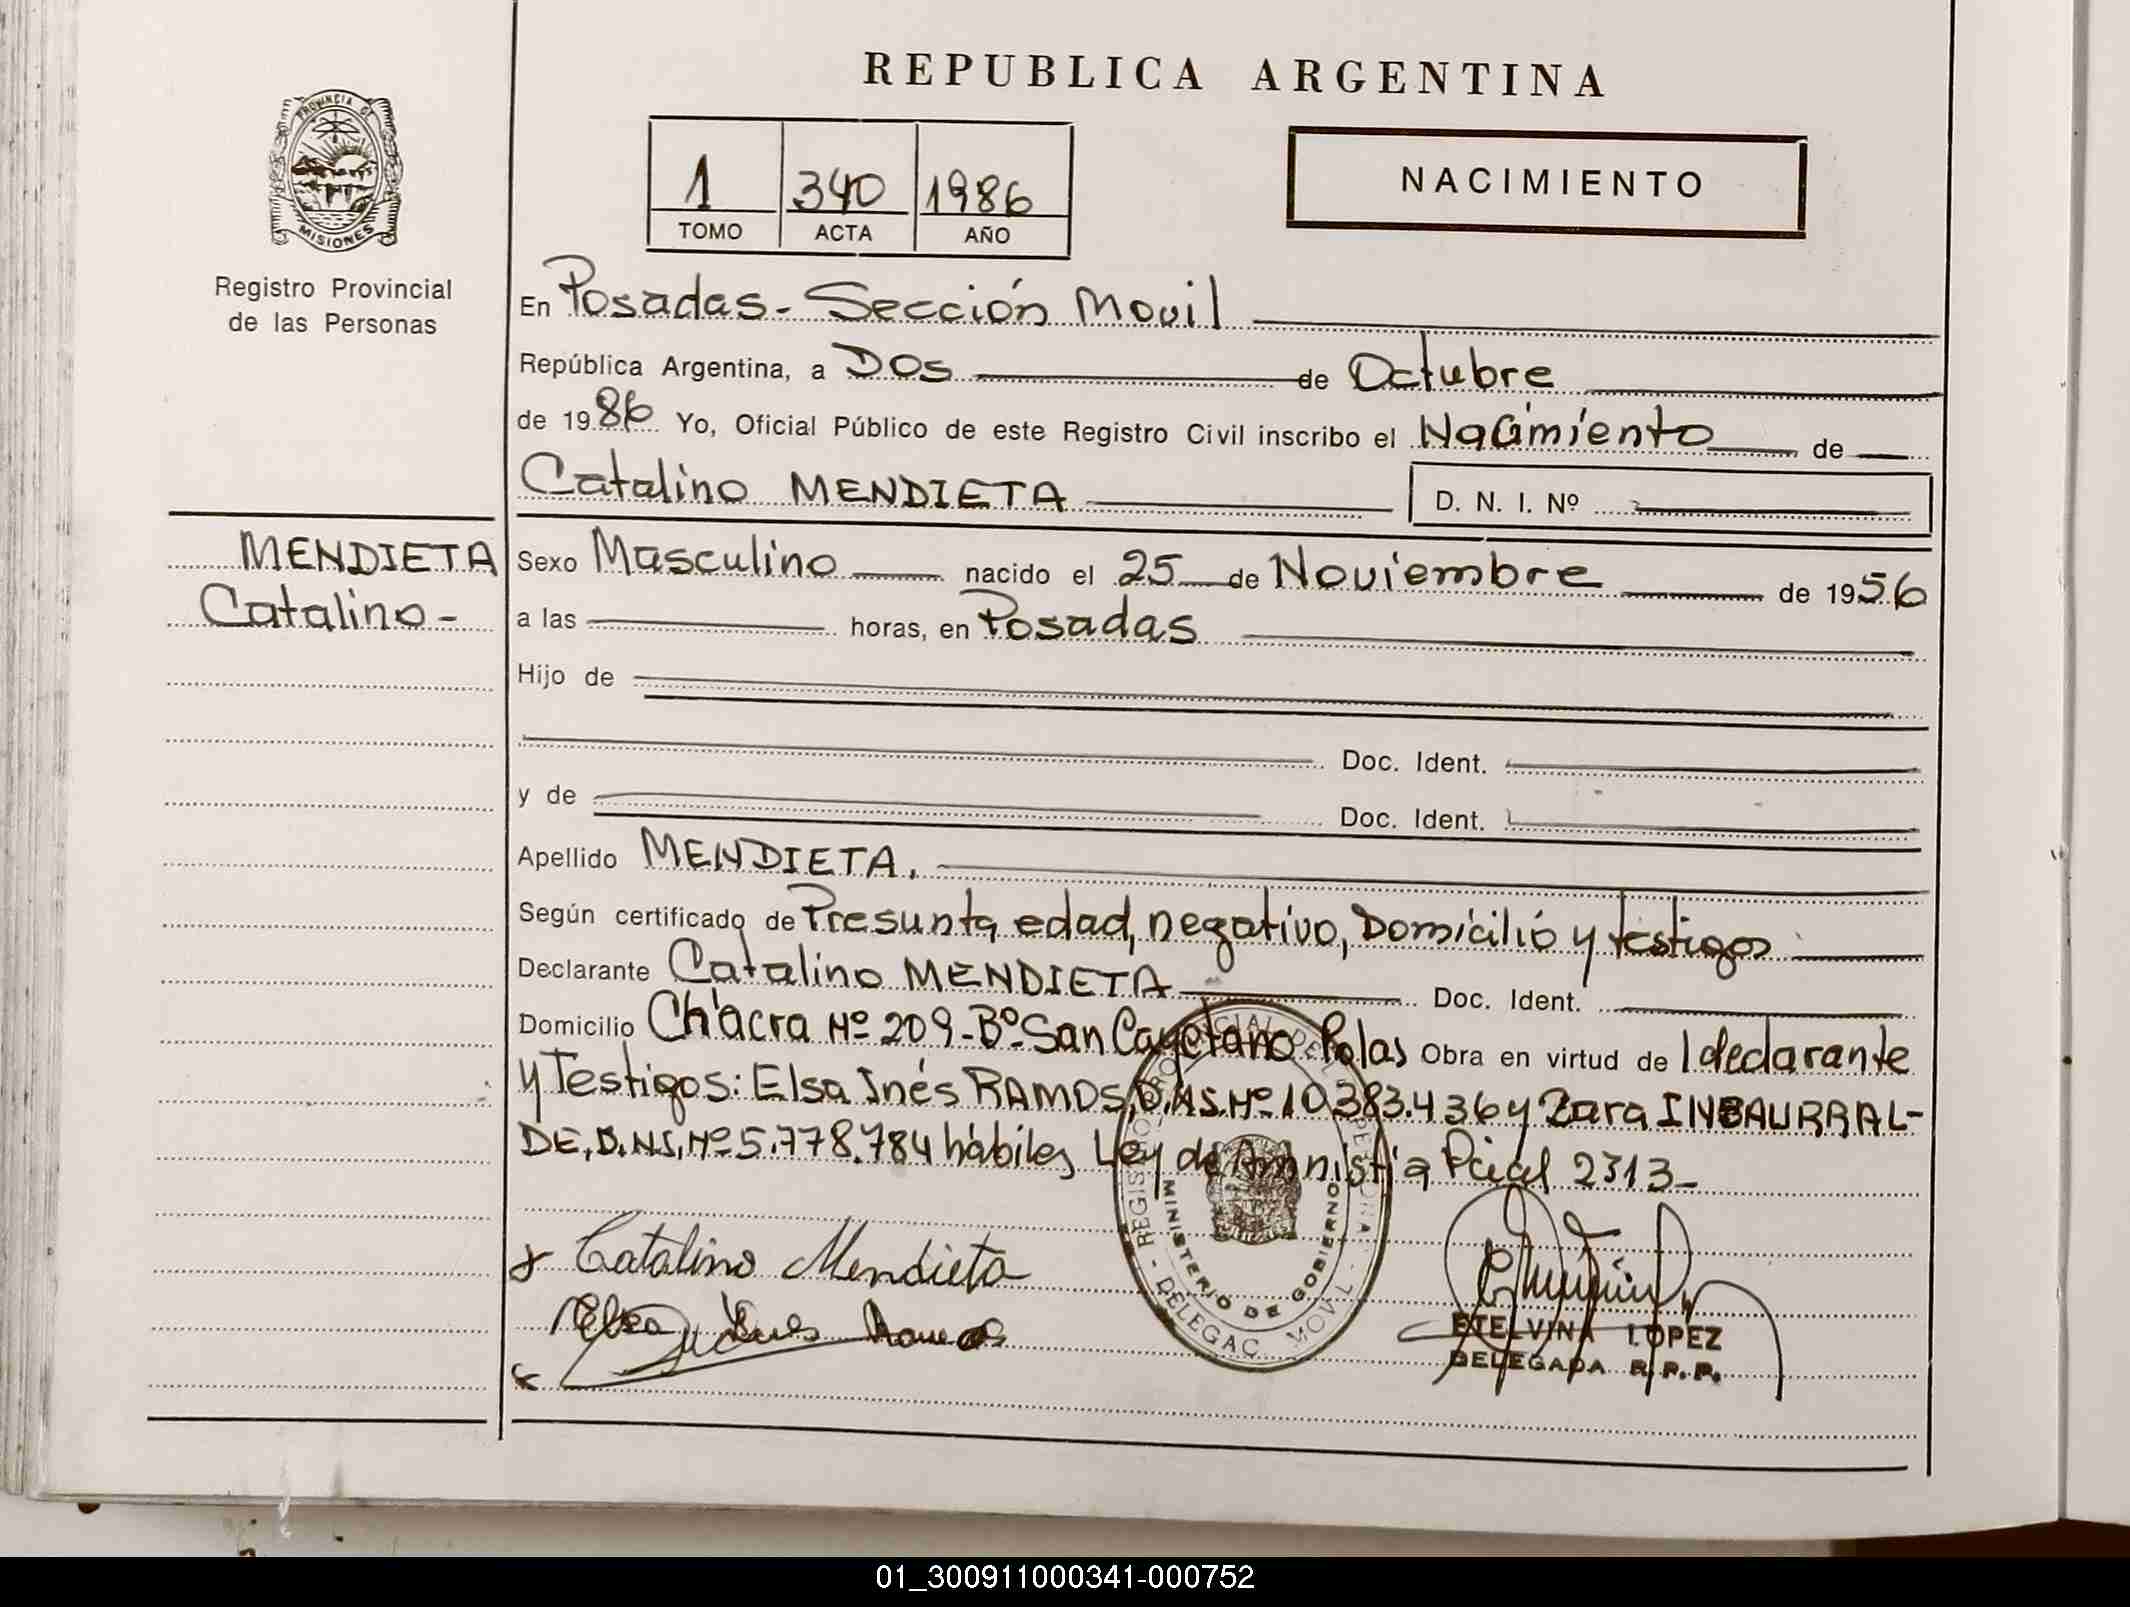 REPUBLICA ARGENTINA
PROVINCIA DE
MISIONES
Registro Provincial
de las Personas
1 340 1986
TOMO ACTA AÑO
NACIMIENTO
En Posadas - Sección Movil
República Argentina, a Dos de Octubre
de 1986 Yo, Oficial Público de este Registro Civil inscribo el Nacimiento de
Catalino MENDIETA D. N. I. Nº
MENDIETA
Catalino -
Sexo Masculino nacido el 25 de Noviembre de 1956
a las horas, en Posadas
Hijo de
Doc. Ident.
y de Doc. Ident.
Apellido MENDIETA.
Según certificado de Presunta edad, negativo, Domicilio y testigos
Declarante Catalino MENDIETA Doc. Ident.
Domicilio Chacra Nº 209 - Bº San Cayetano Pdas Obra en virtud de l declarante
y Testigos: Elsa Inés RAMOS, D.N.I. Nº 10.383.436 y Zara INSAURRAL-
DE, D.N.I. Nº 5.778.784 hábiles, Ley de Amnistía Pcial 2313 -
Catalino Mendieta
Elsa Ines Ramos
MINISTERIO DE GOBIERNO
DELEGAC. MOVIL
ETELVINA LOPEZ
DELEGADA R.P.P.
01_300911000341-000752